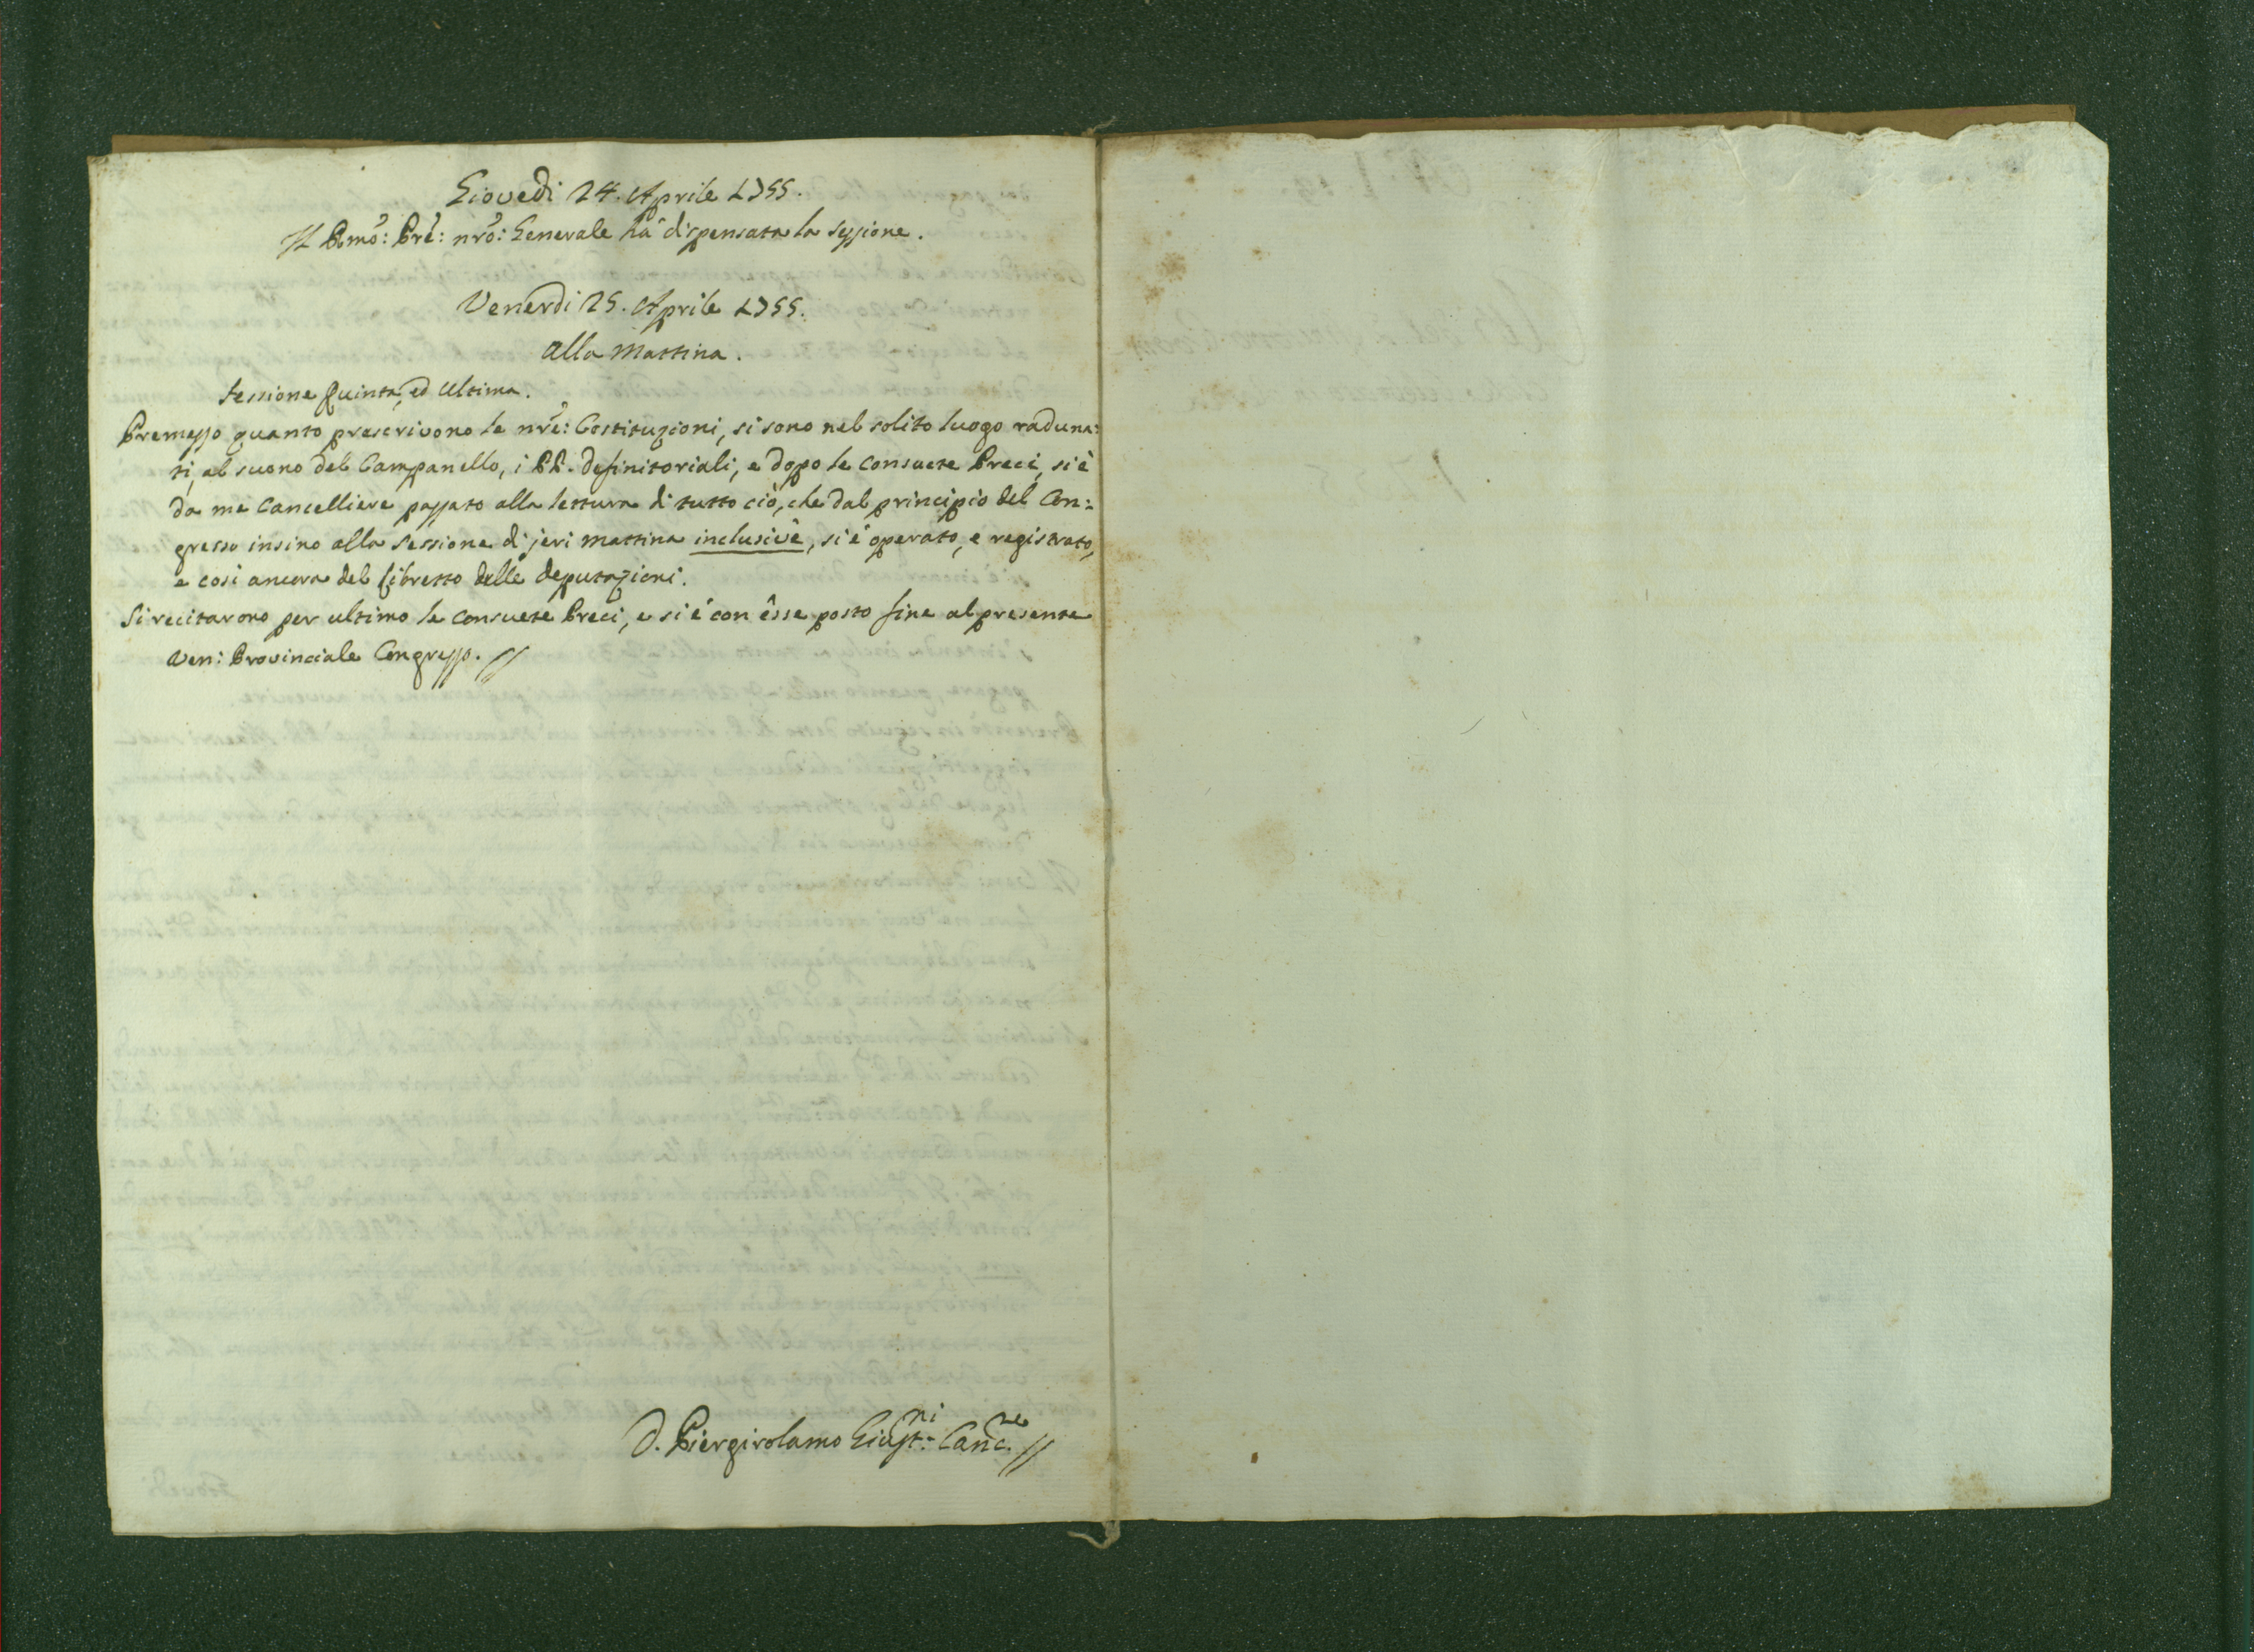 Giovedì 24. Aprile 1755.
Il Rmõ: Prẽ: nrõ: Generale hà dispensata la sessione.
Venerdì 25. Aprile 1755.
alla Mattina.
Sessione Quinta, ed Ultima.
Premesso quanto prescrivono le nrẽ: Costituzioni, si sono nel solito luogo raduna:
ti, al suono del Campanello, i PP. Definitoriali, e dopo le consuete Preci, si è
da me Cancelliere passato alla lettura di tutto ciò, che dal principio del Con:
gresso insino alla Sessione di jeri mattina inclusivè, si è operato, e registrato,
e così ancora del libretto delle deputazioni.
Si recitarono per ultimo le consuete Preci, e si è con esse posto fine al presente
Ven: Provinciale Congresso. //
D. Piergirolamo Giust:ni Canc.re //